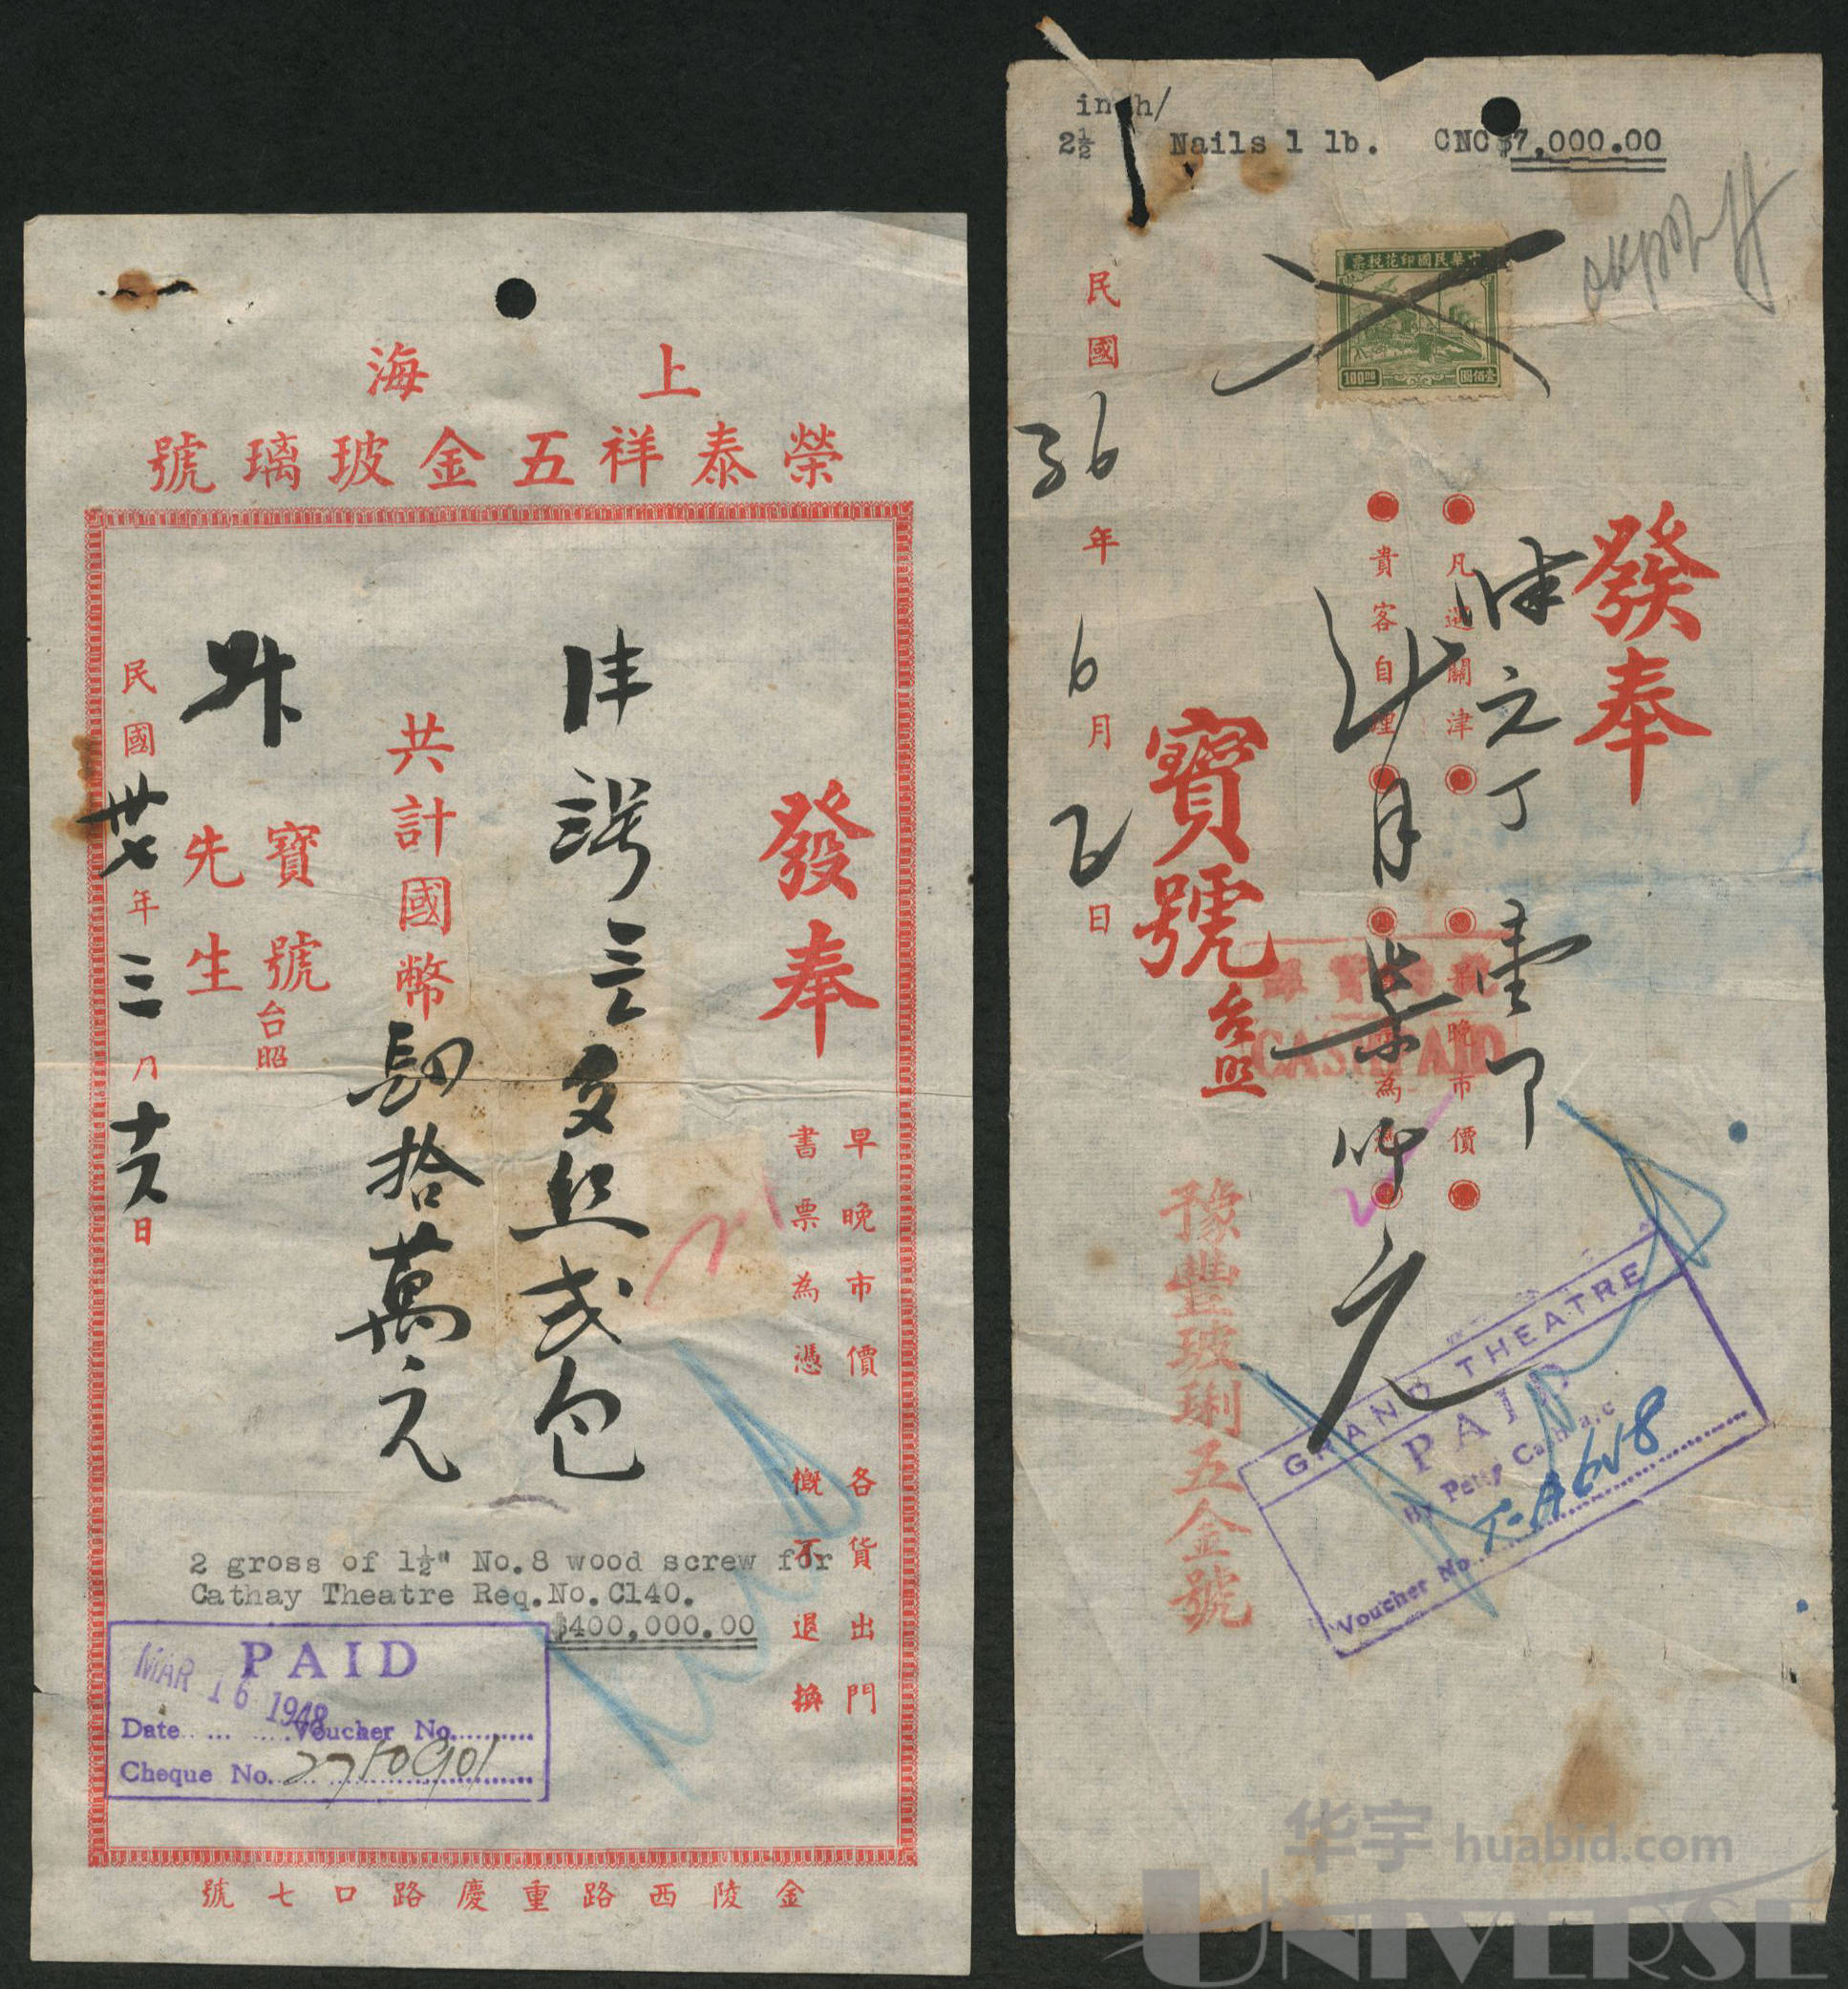 上海
榮泰祥五金玻璃號
發奉
早晚市價 各貨出門
書票為憑 概不退換
共計國幣肆拾萬元
寶號
先生
台照
民國卅七年三月十六日
2 gross of 1½" No.8 wood screw for
Cathay Theatre Req.No.C140.
$400,000.00
PAID
MAR 16 1948
Date Voucher No.
Cheque No. 2710901
金陵西路重慶路口七號
inch/
2½ Nails 1 lb. CNC$7,000.00
中華民國印花稅票
100.00
壹佰圓
發奉
凡遇關津
貴客自理
早晚市價
為憑
洋元丁壹
柒仟元
寶號台照
民國36年6月2日
CASH PAID
豫豐玻琍五金號
GRAND THEATRE
PAID
By Petty Cash a/c
Voucher No.
华宇 huabid.com
UNIVERSE